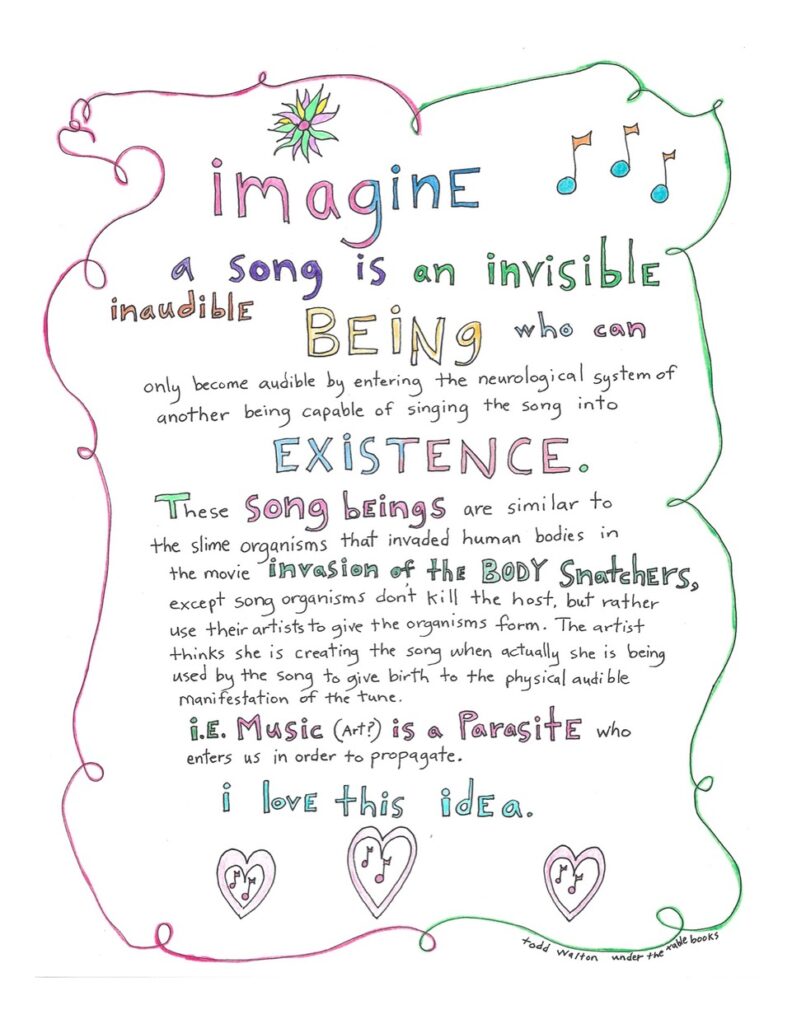 imaginE
a song is an invisiblE
inaudiblE
BEiNg who can
only become audible by entering the neurological system of
another being capable of singing the song into
EXiSTENCE.
These song bEings are similar to
the slime organisms that invaded human bodies in
the movie invasion of the BODY SnatchERS,
except song organisms don't kill the host, but rather
use their artists to give the organisms form. The artist
thinks she is creating the song when actually she is being
used by the song to give birth to the physical audible
manifestation of the tune.
i.E. Music (Art?) is a ParasitE who
enters us in order to propagate.
i lovE this idEa.
todd walton under the table books